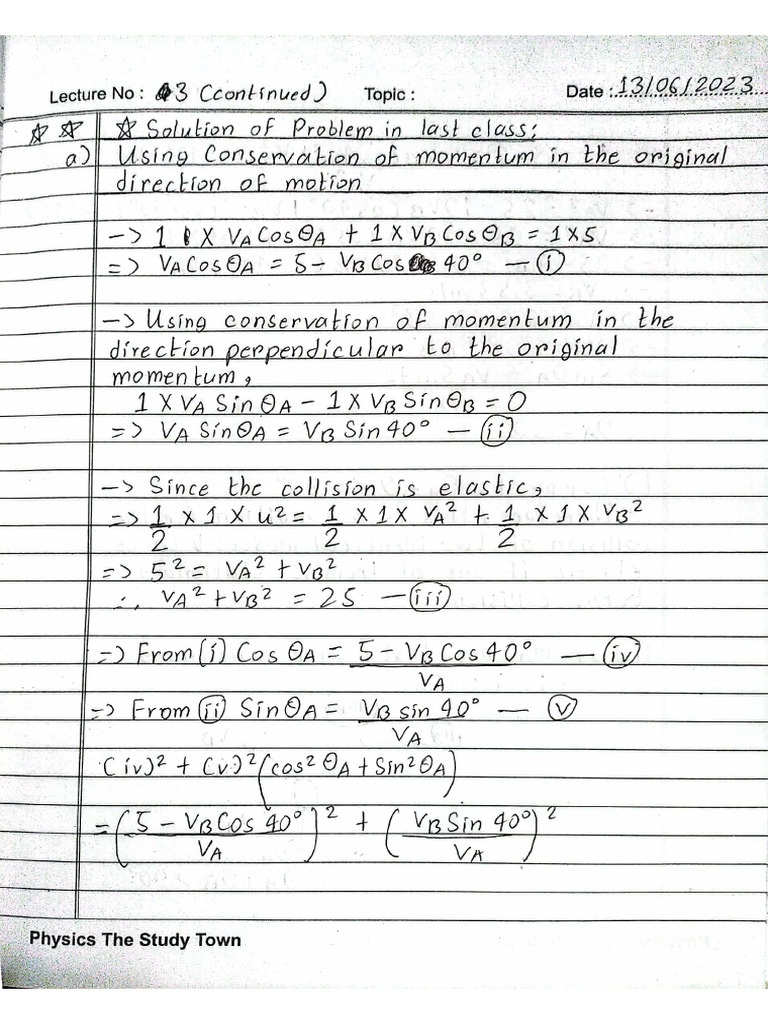 Lecture No : 3 (continued) Topic : Date : 13/06/2023
☆ ☆ ☆ Solution of Problem in last class;
a) Using Conservation of momentum in the original
direction of motion
-> 1 X VA CosθA + 1 X VB CosθB = 1X5
=> VA CosθA = 5 - VB Cos 40° — (i)
-> Using conservation of momentum in the
direction perpendicular to the original
momentum,
1 X VA SinθA - 1 X VB SinθB = 0
=> VA SinθA = VB Sin 40° — (ii)
-> Since the collision is elastic,
=> 1/2 X 1 X u² = 1/2 X 1 X VA² + 1/2 X 1 X VB²
=> 5² = VA² + VB²
∴ VA² + VB² = 25 — (iii)
=> From (i) Cos θA = (5 - VB Cos 40°)/VA — (iv)
=> From (ii) Sin θA = (VB sin 40°)/VA — (v)
(iv)² + (v)² (cos² θA + Sin² θA)
= ((5 - VB Cos 40°)/VA)² + ((VB Sin 40°)/VA)²
Physics The Study Town